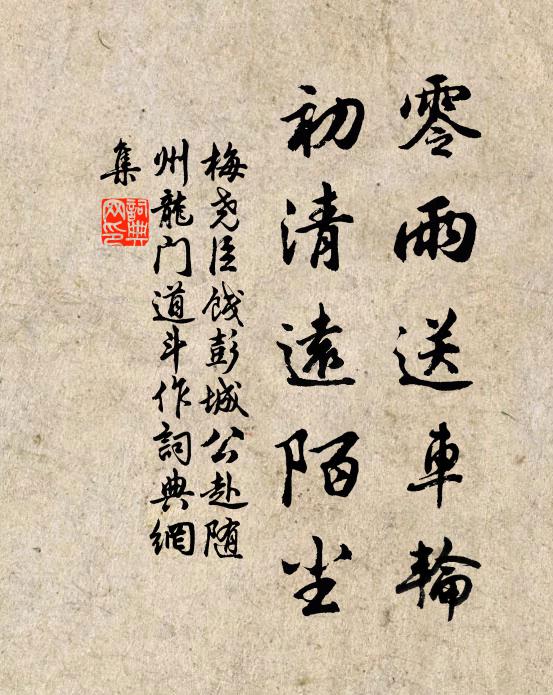 零雨送車輪
初清遠陌尘
梅尧臣餞彭城公赴随
州龍门道斗作詞典網
集
詞典
网印